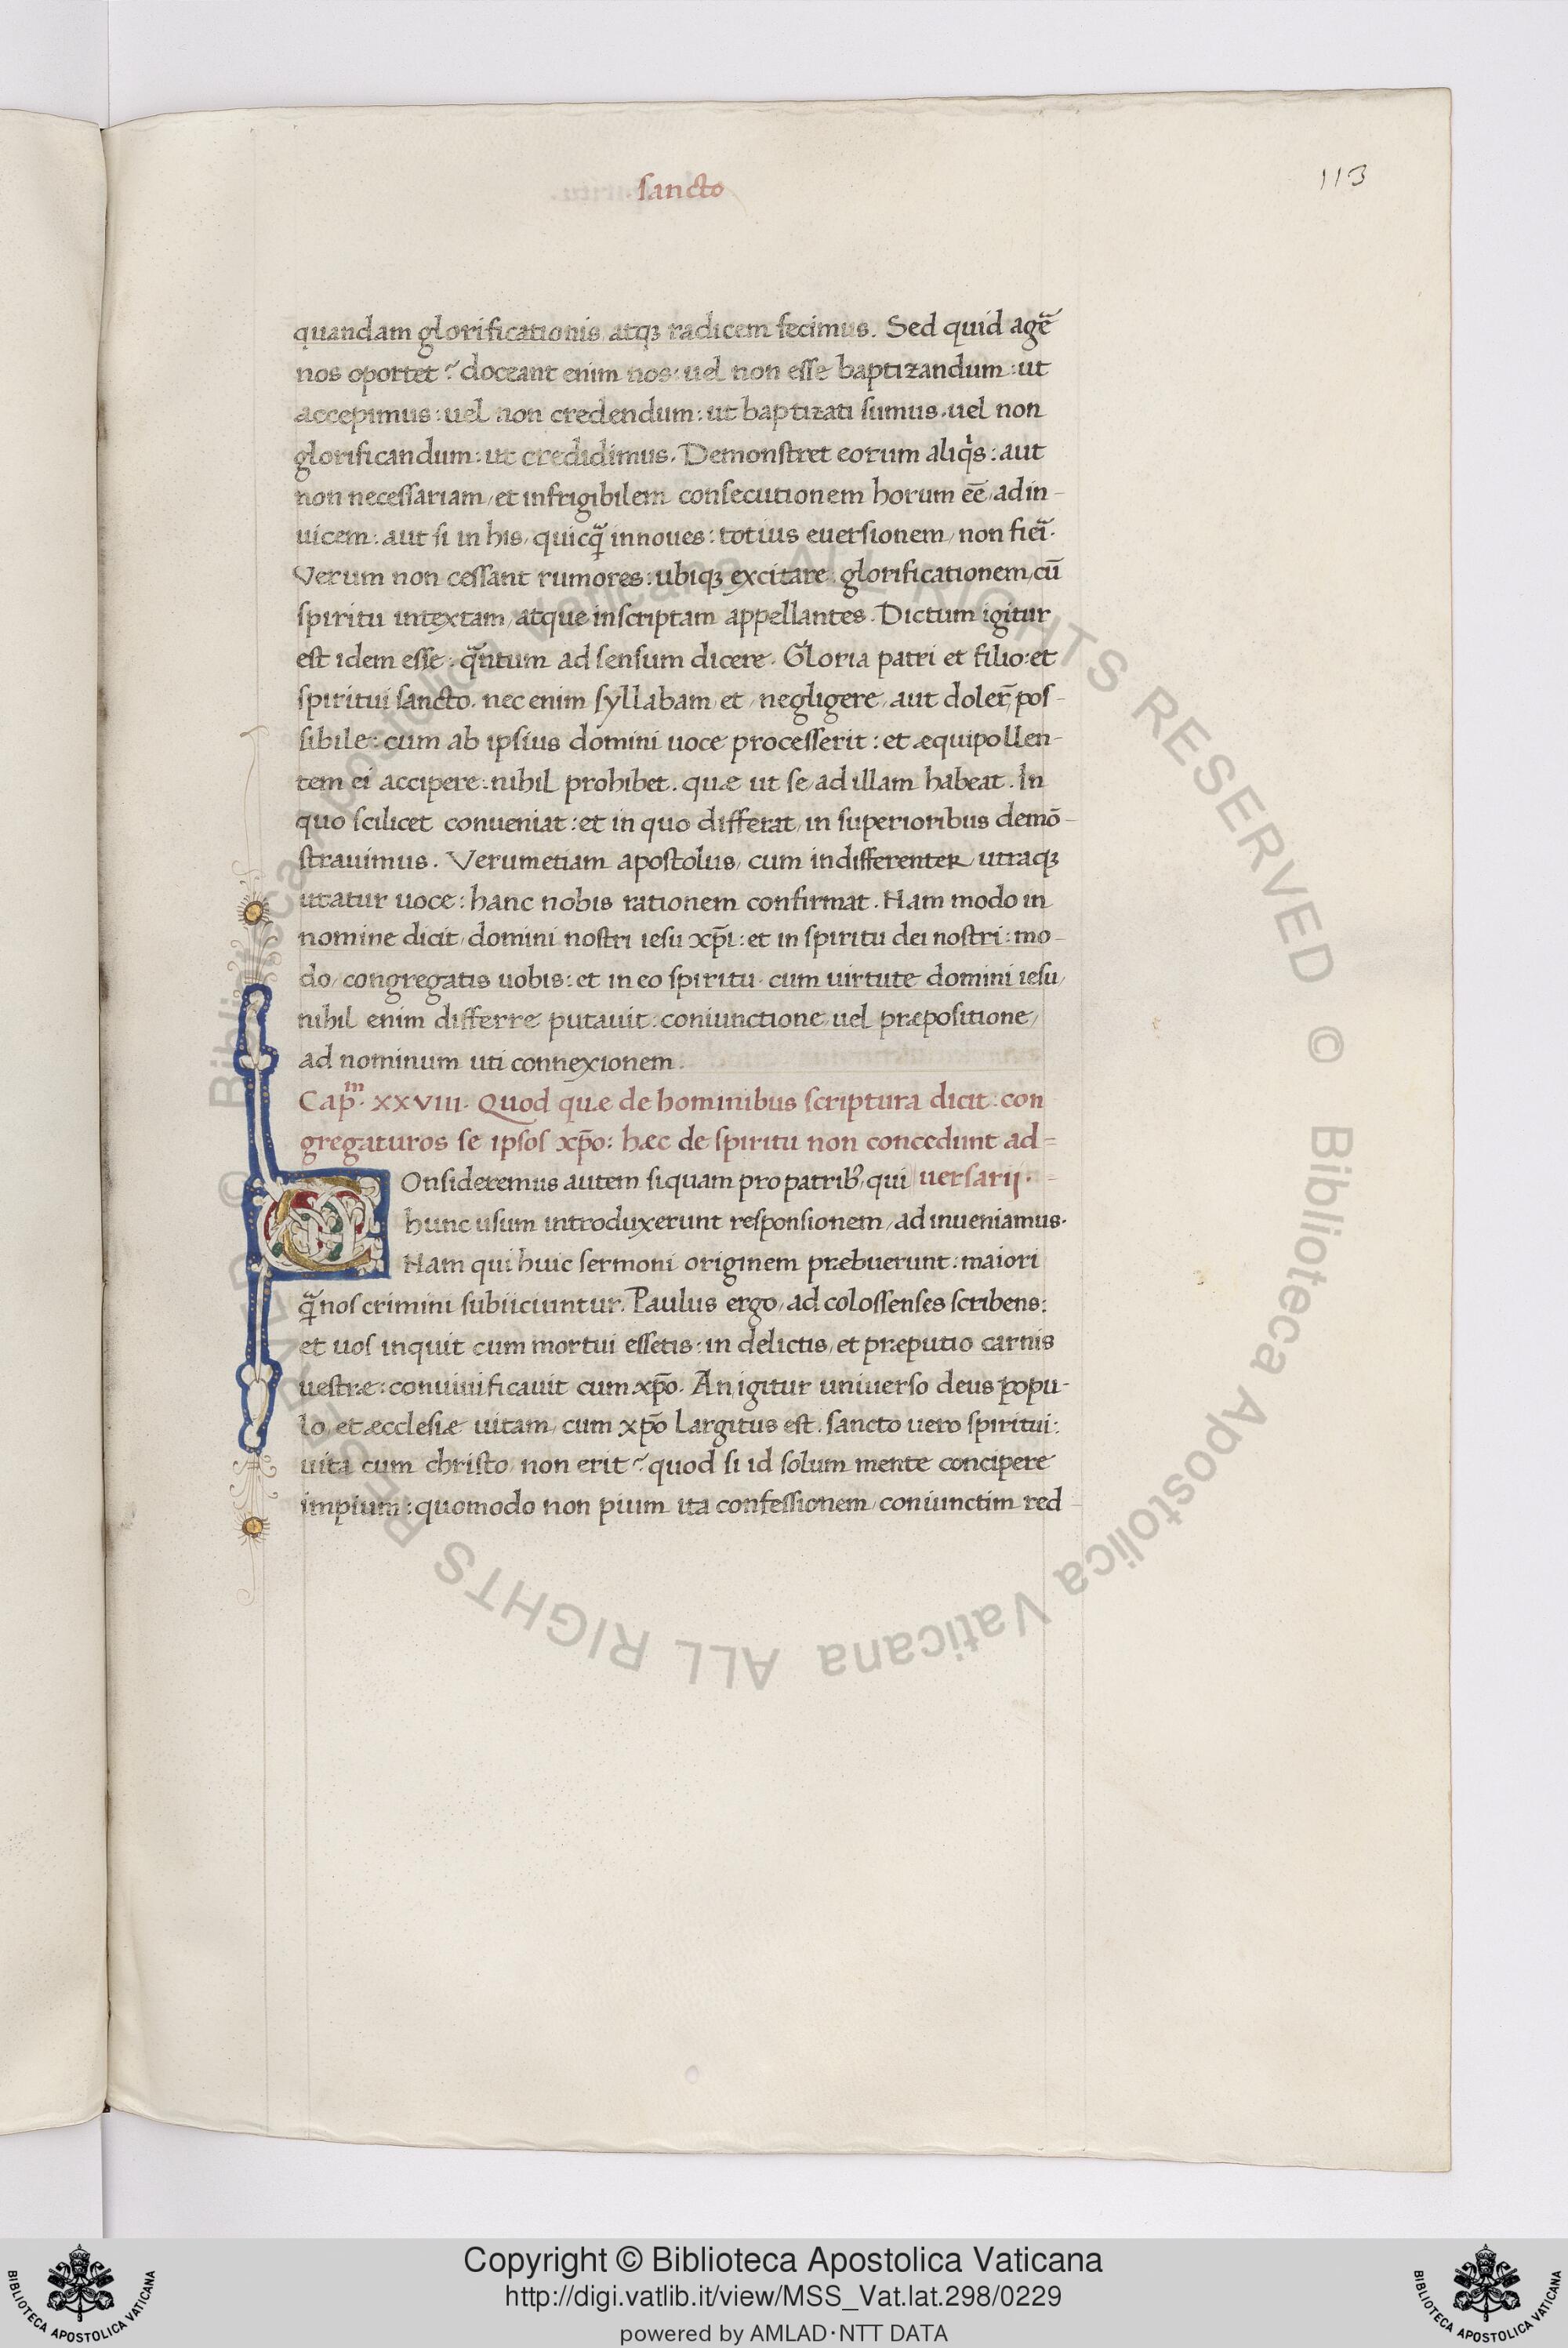 sancto
113
quandam glorificationis atqꝫ radicem fecimus. Sed quid agē
nos oportet? doceant enim nos: uel non esse baptizandum: ut
accepimus: uel non credendum: ut baptizati sumus. uel non
glorificandum: ut credidimus. Demonstret eorum aliqͥs: aut
non necessariam, et infrigibilem consecutionem horum eē, ad in-
uicem: aut si in his, quicq̃ innoues: totius euersionem, non fierī.
Verum non cessant rumores: ubiqꝫ excitare: glorificationem, cū
spiritu intextam, atque inscriptam appellantes. Dictum igitur
est idem esse: q̃ntum ad sensum dicere. Gloria patri et filio: et
spiritui sancto. nec enim syllabam, et, negligere, aut doler̃, pos-
sibile: cum ab ipsius domini uoce processerit: et æquipollen-
tem ei accipere: nihil prohibet. quæ ut se, ad illam habeat. In
quo scilicet conueniat: et in quo differat, in superioribus demō-
strauimus. Verumetiam apostolus, cum indifferenter, utraqꝫ
utatur uoce: hanc nobis rationem confirmat. Nam modo in
nomine dicit, domini nostri iesu xp̄i: et in spiritu dei nostri: mo-
do, congregatis uobis: et in eo spiritu. cum uirtute domini iesu,
nihil enim differre putauit: coniunctione, uel præpositione,
ad nominum uti connexionem.
Cap.ᵐ XXVIII. Quod quæ de hominibus scriptura dicit: con
gregaturos se ipsos xp̄o: hæc de spiritu non concedunt ad=
COnsideremus autem siquam pro patribꝰ, qui uersarij.
hunc usum introduxerunt responsionem, ad inueniamus.
Nam qui huic sermoni originem præbuerunt: maiori
q̃ nos crimini subiiciuntur. Paulus ergo, ad colossenses scribens:
et uos inquit cum mortui essetis: in delictis, et præputio carnis
uestræ: conuiuificauit cum xp̄o. An igitur uniuerso deus popu-
lo, et æcclesiæ uitam, cum xp̄o largitus est. sancto uero spiritui:
uita cum christo non erit? quod si id solum mente concipere
impium: quomodo non pium ita confessionem, coniunctim red
© Biblioteca Apostolica Vaticana ALL RIGHTS RESERVED © Biblioteca Apostolica Vaticana ALL RIGHTS RESERVED
BIBLIOTECA APOSTOLICA VATICANA
Copyright © Biblioteca Apostolica Vaticana
http://digi.vatlib.it/view/MSS_Vat.lat.298/0229
powered by AMLAD·NTT DATA
BIBLIOTECA APOSTOLICA VATICANA